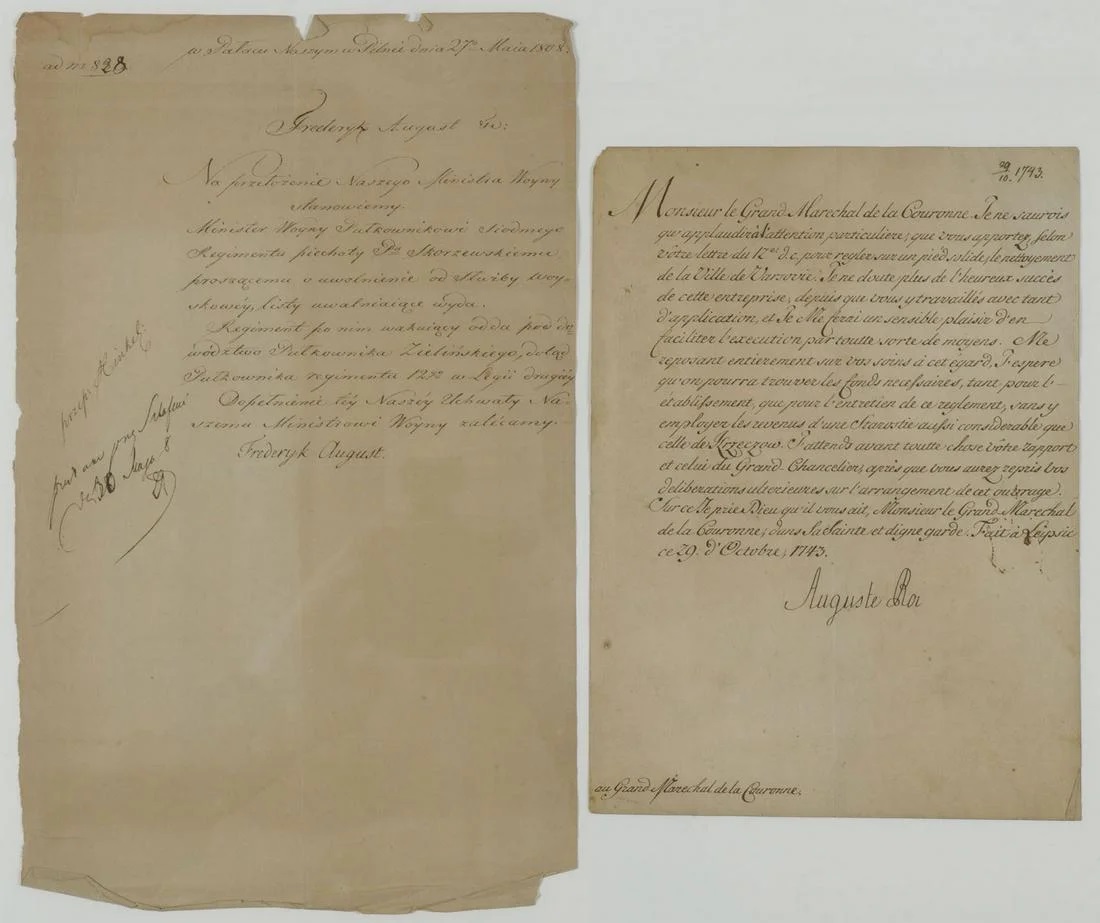 w Pałacu Naszym w Pilnie dnia 27go Maia 1808.
ad nr 828
Frederyk August &c:
Na przełożenie Naszego Ministra Woyny
stanowiemy.
Minister Woyny Pułkownikowi siodmego
Regimentu piechoty Pu Skorzewskiemu
proszącemu o uwolnienie od służby woy-
skowéy, listy uwalniaiące wyda.
Regiment po nim wakuiący odda pod do-
wodztwo Pułkownika Zielińskiego, dotąd
Pułkownika regimentu 12go w Legii drugiéy
Dopełnienie téy Naszéy Uchwały Na-
szemu Ministrowi Woyny zalicamy.
Frederyk August.
30 Maja 8
29/10. 1743.
Monsieur le Grand Marechal de la Couronne. Je ne saurois
qu'applaudir à l'attention particuliere, que vous apportez, selon
vôtre lettre du 17me d.c. pour regler sur un pied solide, le nettoyement
de la Ville de Varsovie. Je ne doute plus de l'heureux succès
de cette entreprise, depuis que vous y travaillés avec tant
d'application, et Je Me ferai un sensible plaisir d'en
faciliter l'execution par toute sorte de moyens. Me
reposant entierement sur vos soins à cet égard, J'espere
qu'on pourra trouver les fonds necessaires, tant pour l'-
établissement, que pour l'entretien de ce reglement, sans y
employer les revenus d'une Starostie aussi considerable que
celle de J'attends avant toutte chose vôtre rapport
et celui du Grand Chancelier, après que vous aurez repris vos
deliberations ulterieures sur l'arrangement de cet ouvrage.
Sur ce Je prie Dieu qu'il vous ait, Monsieur le Grand Marechal
de la Couronne, dans Sa Sainte et digne garde. Fait à Leipsic
ce 29. d'Octobre, 1743.
Auguste Roi
au Grand Marechal de la Couronne.